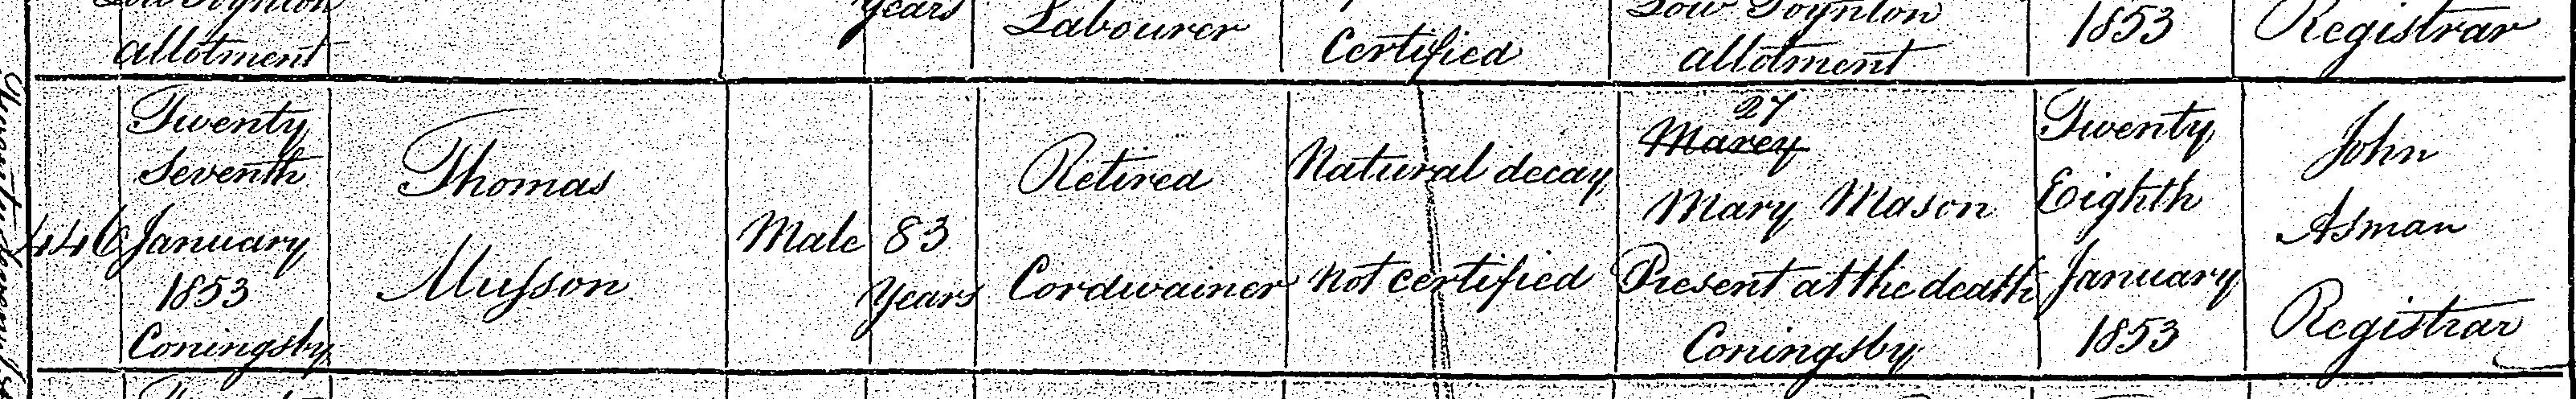 Low Toynton
allotment
years
Labourer
Certified
Low Toynton
allotment
1853
Registrar
446
Twenty
Seventh
January
1853
Coningsby
Thomas
Musson
Male
83
years
Retired
Cordwainer
Natural decay
not certified
27
Marey
Mary Mason
Present at the death
Coningsby
Twenty
Eighth
January
1853
John
Asman
Registrar